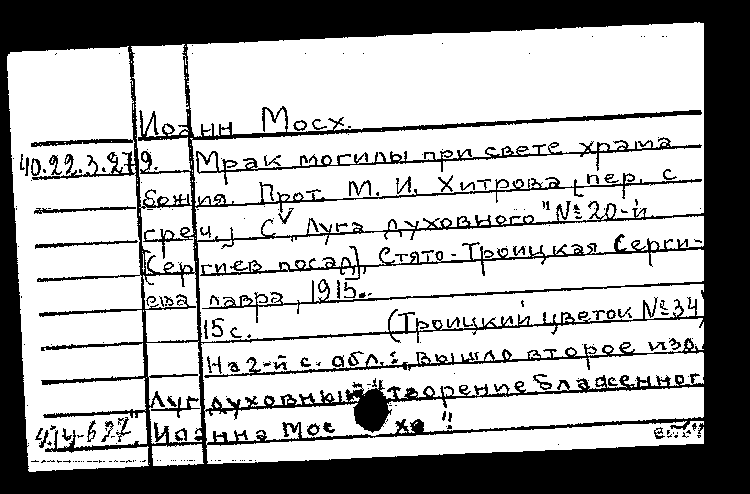 Иоанн Мосх.
40.22.3.279. Мрак могилы при свете храма
божия. Прот. М. И. Хитрова [пер. с
греч.] С „Луга духовного" №20-й
[Сергиев посад], Стято-Троицкая Серги-
ева лавра, 1915.
15 с. (Троицкий цветок №34)
На 2-й с. обл.: „вышло второе изд.
Луг духовный" творение блаженног
Иоанна Мосха"